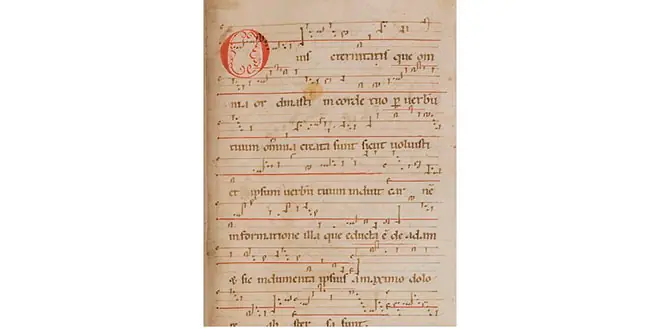 O uis eternitatis que om
nia or dinasti in corde tuo p̱ uerbū
tuum omnia creata sunt sicut uoluisti
et ipsum uerbū tuum induit car nē
in formatione illa que educta ē de adam
& sic indumenta ipsius a maximo dolo
re ab ster sa sunt.